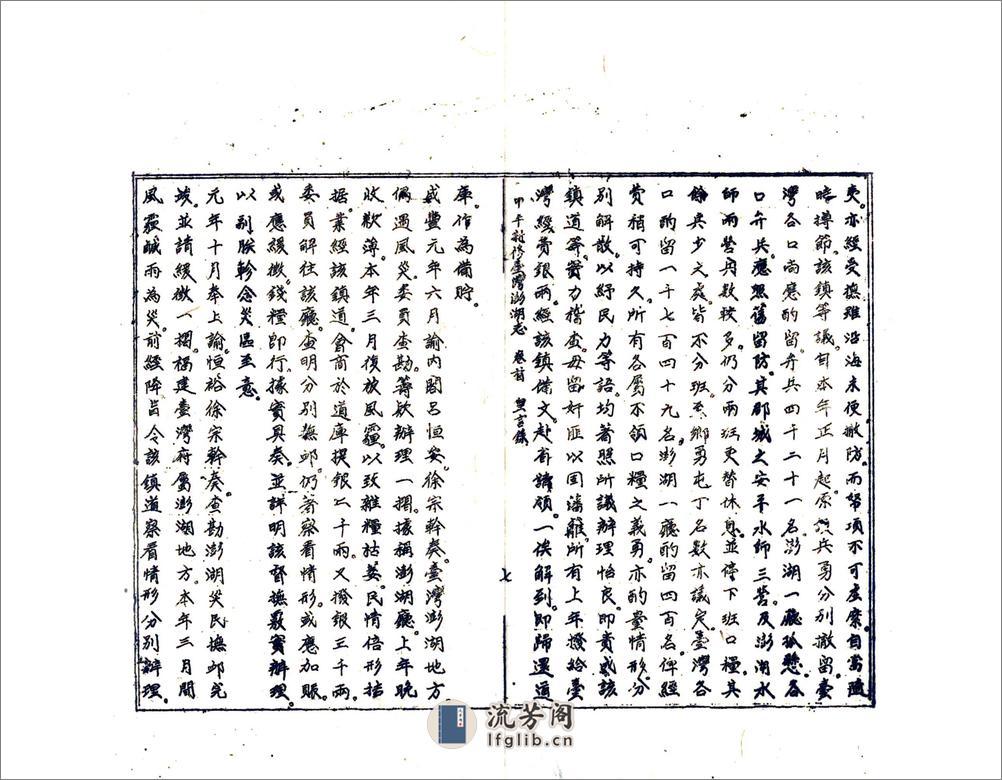 夷。亦經受撫。雖沿海未便撤防。而帑項不可虛糜。自當隨
時撙節。該鎮等議。自本年正月起。原設兵勇分別撤留。臺
灣各口尚應酌留弁兵四千二十一名。澎湖一廳孤懸。各
口弁兵。應照舊留防。其郡城之安平水師三營。及澎湖水
師兩營。兵數較多。仍分兩班更替休息。並停下班口糧。其
餘兵少之處。皆不分班。至鄉勇屯丁名數。亦議定臺灣各
口酌留一千七百四十九名。澎湖一廳酌留四百名。俾經
費稍可持久。所有各屬不領口糧之義勇。亦酌量情形。分
別解散。以紓民力等語。均著照所議辦理。怡良。即責成該
鎮道等。實力稽查。毋留奸匪。以固藩籬。所有上年撥給臺
灣經費銀兩。經該鎮備文。赴省請領。一俟解到。即歸還道
甲午新修臺灣澎湖志 卷首 聖言錄
七
庫。作為備貯。
咸豐元年六月。諭內閣。呂恒安。徐宗幹奏。臺灣澎湖地方。
偶遇風災。委員查勘。籌款辦理一摺。據稱澎湖廳。上年晚
收歉薄。本年三月。復被風霾。以致雜糧枯萎。民情倍形拮
据。業經該鎮道。會商於道庫提銀二千兩。又撥銀三千兩。
委員解往該廳。查明分別撫卹。仍著察看情形。或應加賑。
或應緩徵錢糧。即行據實具奏。並詳明該督撫覈實辦理。
以副朕軫念災區至意。
元年十月。奉上諭。恒裕。徐宗幹奏。查勘澎湖災民撫卹完
竣。並請緩徵一摺。福建臺灣府屬澎湖地方。本年三月間。
風霾鹹雨為災。前經降旨。令該鎮道察看情形。分別辦理。
流芳阁
lfglib.cn